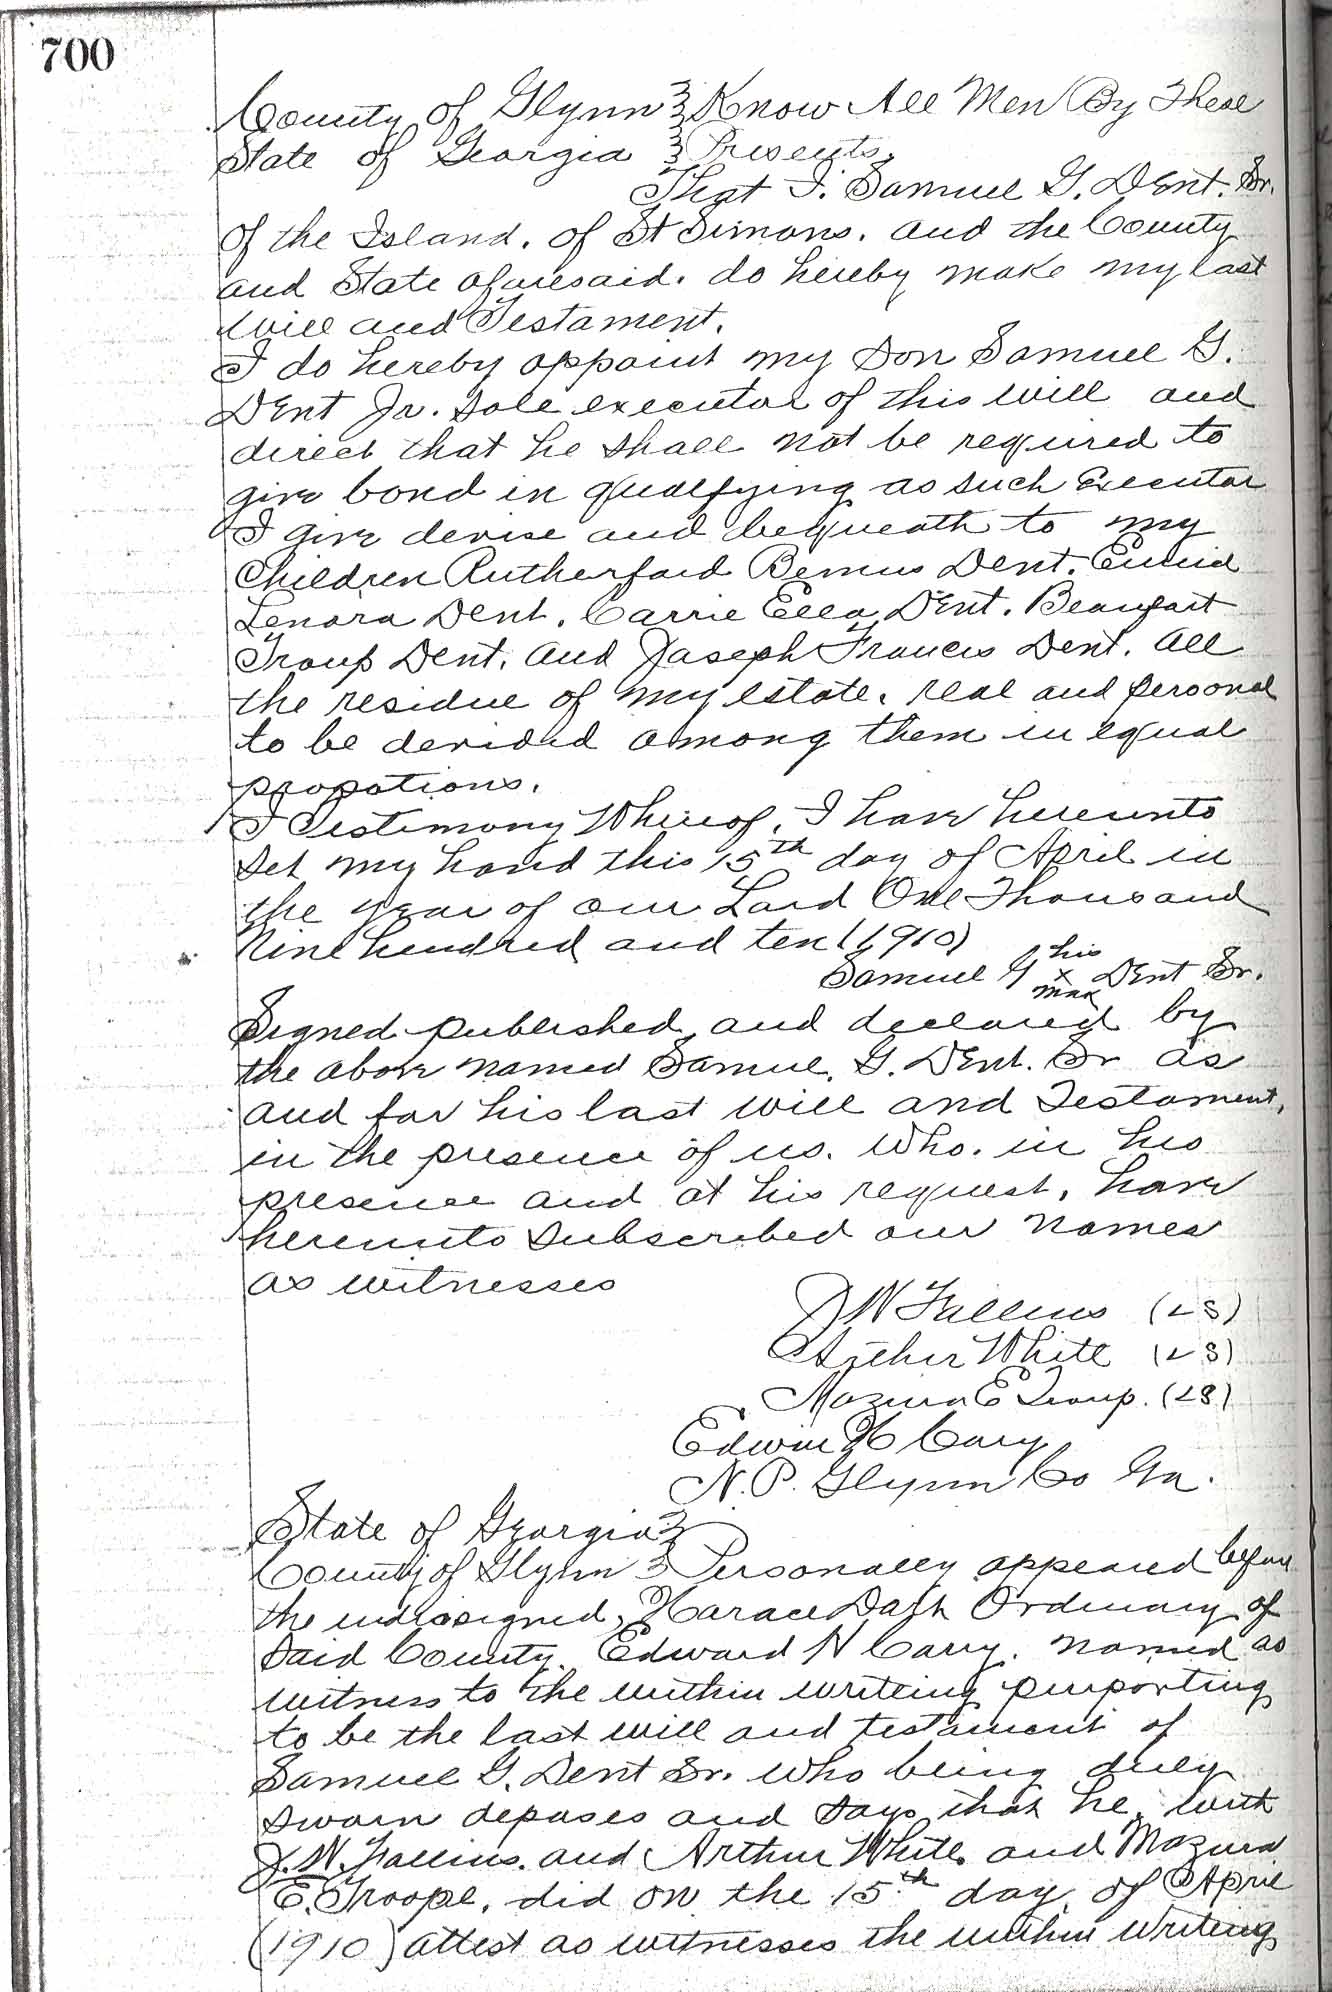 700
County of Glynn } Know All Men By These
State of Georgia } Presents,
That I. Samuel G. Dent. Sr.
of the Island. of St Simons. and the County
and State aforesaid. do hereby make my last
Will and Testament.
I do hereby appoint my Son Samuel G.
Dent Jr. Sole executor of this will and
direct that he shall not be required to
give bond in qualfying as such Executor
I give devise and bequeath to my
Children Rutherford Bemus Dent. Eunid
Lenora Dent. Carrie Ella Dent. Beaufort
Troup Dent. and Joseph Francis Dent. all
the residue of my estate. real and personal
to be devided among them in equal
propotions.
I Testimony Whereof, I have hereunto
set my hand this 15th day of April in
the year of our Lord One Thousand
Nine hundred and ten (1910)
Samuel G his x mark Dent Sr.
Signed published and declared by
the above named Samuel. G. Dent. Sr as
and for his last will and Testament,
in the presence of us. Who. in his
presence and at his request, have
hereunto subscribed our names
as witnesses
J W Fallins (LS)
Arthur White (LS)
Mazura E Troup. (LS)
Edwin H Cary
N. P. Glynn Co Ga.
State of Georgia }
County of Glynn } Personally appeared before
the undersigned, Horace Dart Ordinary of
said County. Edward H Cary. named as
witness to the within writeing purporting
to be the last will and testament of
Samuel G. Dent Sr. who being duly
sworn deposes and says that he with
J. W. Fallins. and Arthur White. and Mazura
E. Troope, did on the 15th day of April
(1910) attest as witnesses the within writing